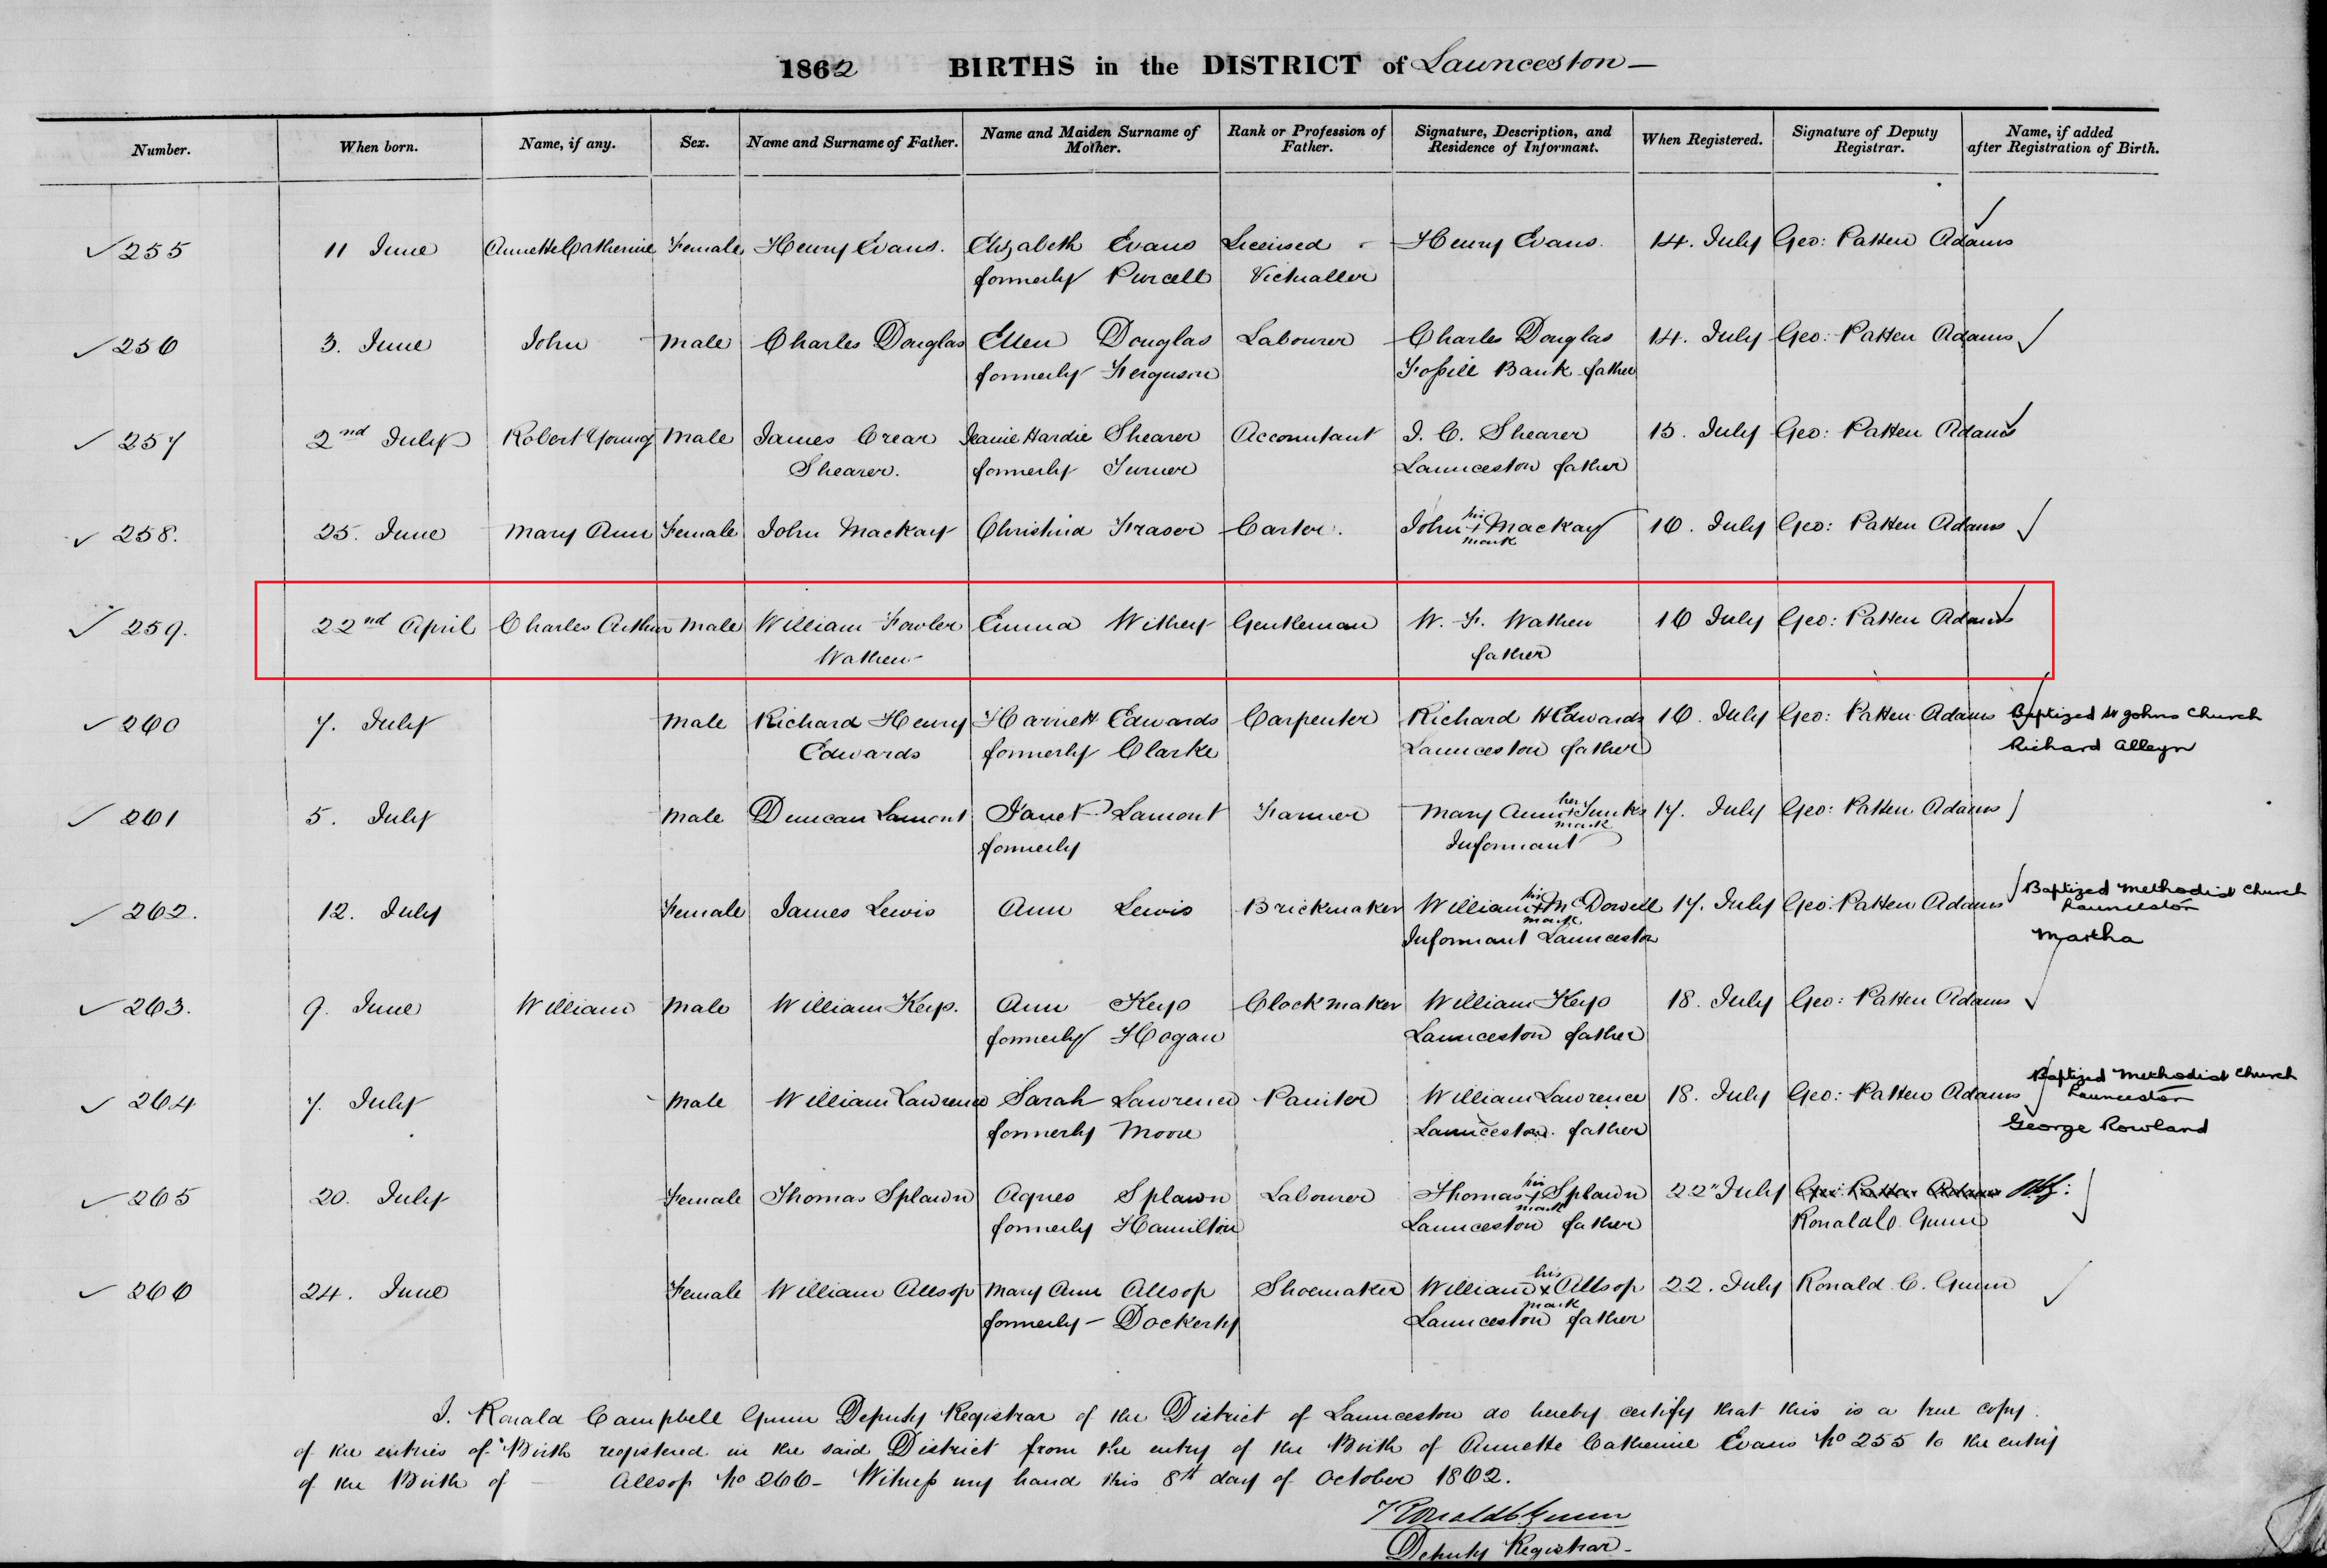 1862 BIRTHS in the DISTRICT of Launceston —
Number. When born. Name, if any. Sex. Name and Surname of Father. Name and Maiden Surname of Mother. Rank or Profession of Father. Signature, Description, and Residence of Informant. When Registered. Signature of Deputy Registrar. Name, if added after Registration of Birth.
255 11 June Annette Catherine Female Henry Evans. Elizabeth Evans Licensed Henry Evans. 14. July Geo: Patten Adams
formerly Purcell Victualler
256 3. June John Male Charles Douglas Ellen Douglas Labourer Charles Douglas 14. July Geo: Patten Adams
formerly Ferguson Fossill Bank father
257 2nd July Robert Young Male James Crear Jeanie Hardie Shearer Accountant J. C. Shearer 15. July Geo: Patten Adams
Shearer. formerly Turner Launceston father
258. 25. June Mary Ann Female John Mackay Christina Fraser Carter. John his + mark Mackay 16. July Geo: Patten Adams
259. 22nd April Charles Arthur Male William Fowler Emma Withey Gentleman W. F. Wathen 16 July Geo: Patten Adams
Wathen father
260 7. July Male Richard Henry Harriett Edwards Carpenter Richard H Edwards 16. July Geo: Patten Adams Baptized St Johns Church
Edwards formerly Clarke Launceston father Richard Alleyn
261 5. July Male Duncan Lamont Janet Lamont Farmer Mary Ann her + mark 17. July Geo: Patten Adams
formerly Informant
262. 12. July Female James Lewis Ann Lewis Brickmaker William his + mark McDowell 17. July Geo: Patten Adams Baptized Methodist Church
Launceston
Informant Launceston Martha
263. 9. June William Male William Keys. Ann Keys Clockmaker William Keys 18. July Geo: Patten Adams
formerly Hogan Launceston father
264 7. July Male William Lawrence Sarah Lawrence Painter William Lawrence 18. July Geo: Patten Adams Baptized Methodist Church
Launceston
formerly Moore Launceston father George Rowland
265 20. July Female Thomas Splawn Agnes Splawn Labourer Thomas his + mark Splawn 22" July Geo: Patten Adams
formerly Hamilton Launceston father Ronald C. Gunn
266 24. June Female William Allsop Mary Ann Allsop Shoemaker William his x mark Allsop 22. July Ronald C. Gunn
formerly - Dockerty Launceston father
I. Ronald Campbell Gunn Deputy Registrar of the District of Launceston do hereby certify that this is a true copy.
of the entries of Birth registered in the said District from the entry of the Birth of Annette Catherine Evans No 255 to the entry
of the Birth of — Allsop No 266 - Witness my hand this 8th day of October 1862.
Ronald C. Gunn
Deputy Registrar -